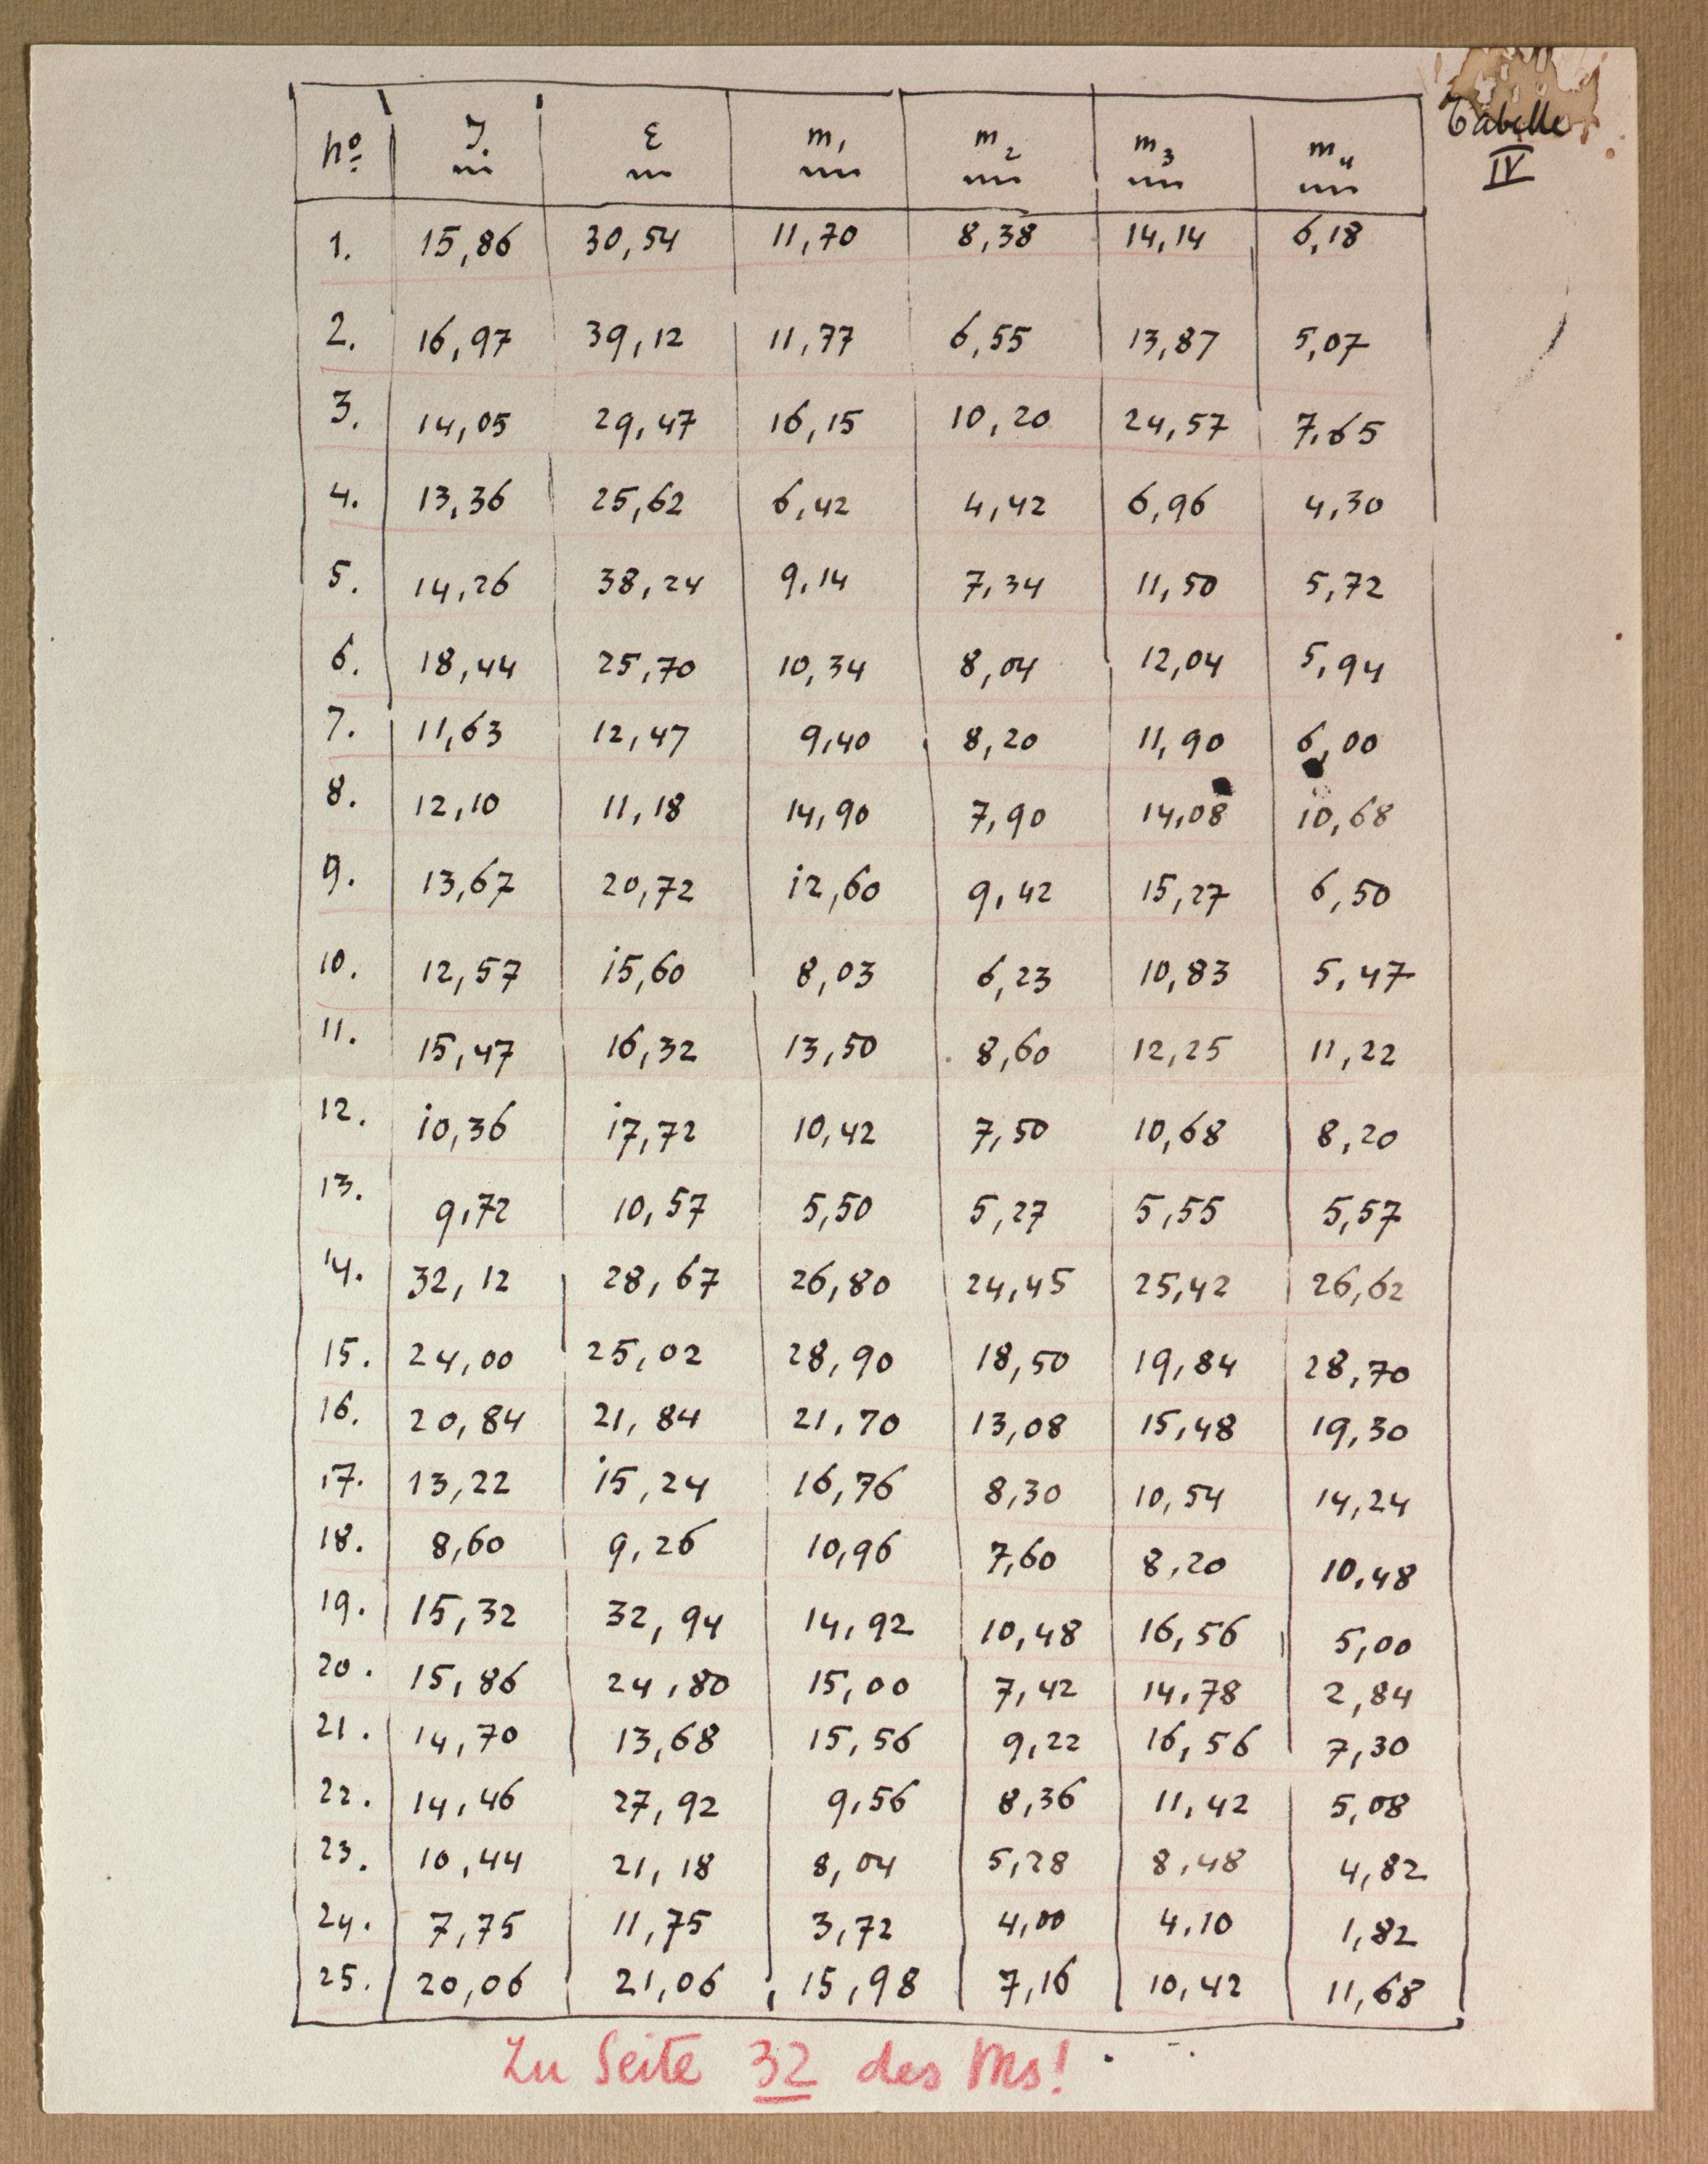 Tabelle
IV
No J E m1 m2 m3 m4
1. 15,86 30,54 11,70 8,38 14,14 6,18
2. 16,97 39,12 11,77 6,55 13,87 5,07
3. 14,05 29,47 16,15 10,20 24,57 7,65
4. 13,36 25,62 6,42 4,42 6,96 4,30
5. 14,26 38,24 9,14 7,34 11,50 5,72
6. 18,44 25,70 10,34 8,04 12,04 5,94
7. 11,63 12,47 9,40 8,20 11,90 6,00
8. 12,10 11,18 14,90 7,90 14,08 10,68
9. 13,67 20,72 12,60 9,42 15,27 6,50
10. 12,57 15,60 8,03 6,23 10,83 5,47
11. 15,47 16,32 13,50 8,60 12,25 11,22
12. 10,36 17,72 10,42 7,50 10,68 8,20
13. 9,72 10,57 5,50 5,27 5,55 5,57
14. 32,12 28,67 26,80 24,45 25,42 26,62
15. 24,00 25,02 28,90 18,50 19,84 28,70
16. 20,84 21,84 21,70 13,08 15,48 19,30
17. 13,22 15,24 16,76 8,30 10,54 14,24
18. 8,60 9,26 10,96 7,60 8,20 10,48
19. 15,32 32,94 14,92 10,48 16,56 5,00
20. 15,86 24,80 15,00 7,42 14,78 2,84
21. 14,70 13,68 15,56 9,22 16,56 7,30
22. 14,46 27,92 9,56 8,36 11,42 5,08
23. 10,44 21,18 8,04 5,28 8,48 4,82
24. 7,75 11,75 3,72 4,00 4,10 1,82
25. 20,06 21,06 15,98 7,16 10,42 11,68
Zu Seite 32 des Ms!